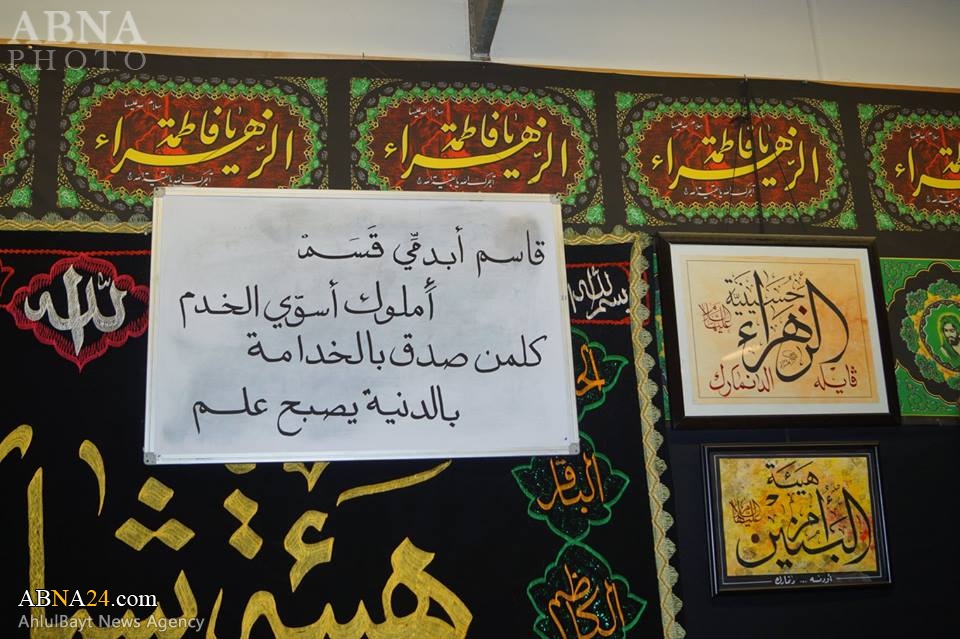 ABNA
PHOTO
يا فاطمة الزهراء
يا فاطمة الزهراء
يا فاطمة الزهراء
قاسم أبدمِّي قَسَمْ
أملوك أسوّي الخدم
كلمن صدق بالخدامة
بالدنية يصبح علم
لله
بسم الله
حسينية
الزهراء
عليها السلام
ڤايله الدنمارك
هيئة
أم البنين
عليها السلام
الباقر
الكاظم
هيئة
ABNA24.com
AhlulBayt News Agency